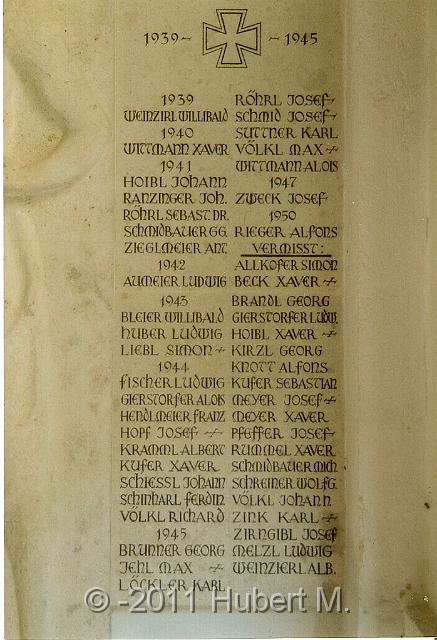 1939~ ~1945
1939
WEINZIRL WILLIBALD
1940
WITTMANN XAVER
1941
HOIBL JOHANN
RANZINGER JOH.
RÖHRL SEBAST. DR.
SCHMIDBAUER GG.
ZIEGLMEIER ANT.
1942
AUMEIER LUDWIG
1943
BLEIER WILLIBALD
HUBER LUDWIG
LIEBL SIMON
1944
FISCHER LUDWIG
GIERSTORFER ALOIS
HENDLMEIER FRANZ
HOPF JOSEF
KRAMML ALBERT
KUFER XAVER
SCHIESSL JOHANN
SCHINHARL FERDIN
VÖLKL RICHARD
1945
BRUNNER GEORG
JEHL MAX
LÖCKLER KARL
RÖHRL JOSEF
SCHMID JOSEF
SUTTNER KARL
VÖLKL MAX
WITTMANN ALOIS
1947
ZWECK JOSEF
1950
RIEGER ALFONS
VERMISST:
ALLKOFER SIMON
BECK XAVER
BRANDL GEORG
GIERSTORFER LUDW.
HOIBL XAVER
KIRZL GEORG
KNOTT ALFONS
KUFER SEBASTIAN
MEYER JOSEF
MEYER XAVER
PFEFFER JOSEF
RUMMEL XAVER
SCHMIDBAUER MICH
SCHREINER WOLFG.
VÖLKL JOHANN
ZINK KARL
ZIRNGIBL JOSEF
MELZL LUDWIG
WEINZIERL ALB.
© -2011 Hubert M.